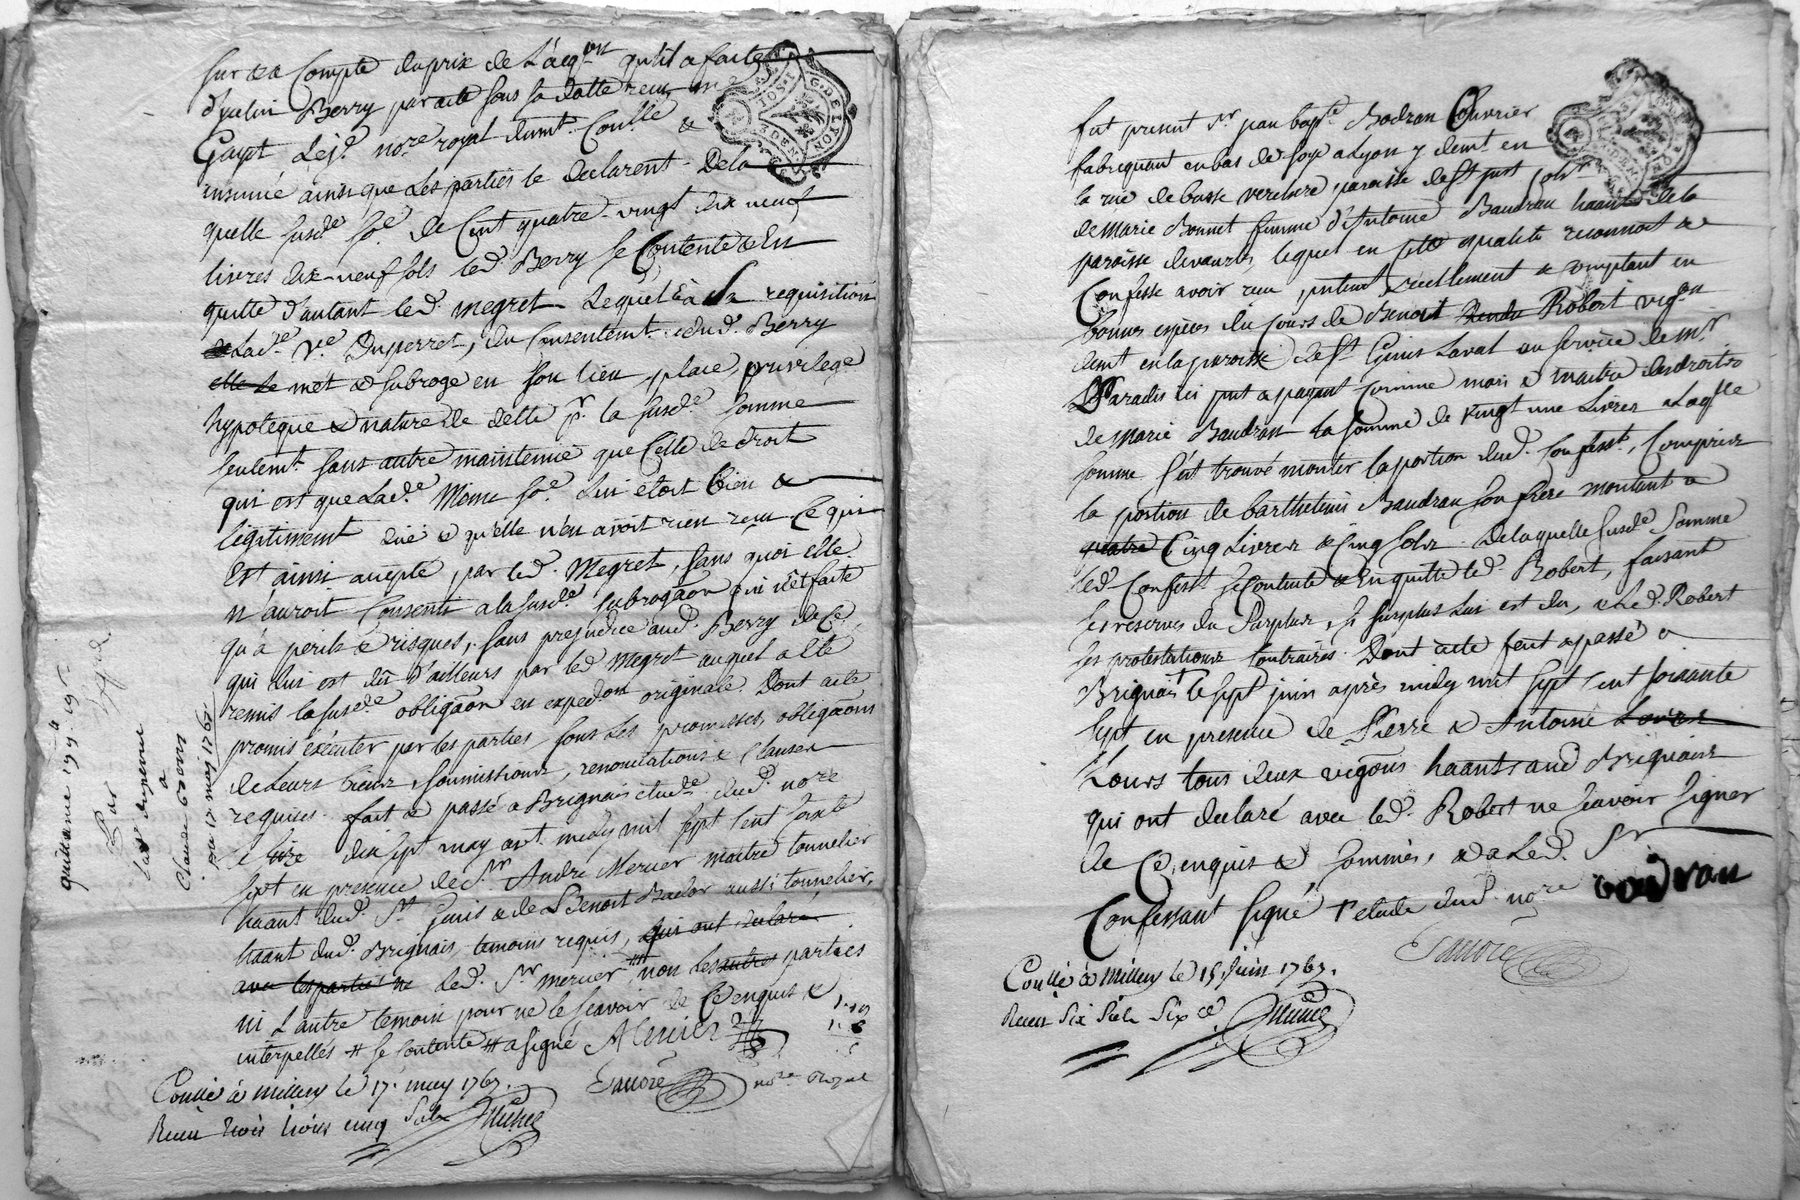 sur & a Compte du prix de L'acq.on qu'il a faite
dud. Berry par acte sous sa datte reçu me
Gayot Lejd. nore. royal aud. Coulle &
insinué ainsi que Les parties le declarent. De la
quelle susde. soe. de Cent quatre-vingt dix neuf
livres dix-neuf sols led. Berry se Contente & En
quitte d'autant led. Megret. Lequel à la requisition
Lade. ve. Duperret, du Consentemt. dud. Berry
elle Le met & subroge en son lieu, place, privilege
hypoteque & nature de dette pr. la susde. somme
seulemt. sans autre maintenüe que Celle de droit
qui est que Lade. Meme soe. Lui etoit bien &
legitimemt düe & qu'elle n'en avoit rien reçu Ce qui
Est ainsi accepté par led. Megret, sans quoi elle
n'auroit Consenti a la susde. subrogaon qui n'est faite
qu'à perils & risques, sans prejudice aud. Berry de Ce
qui Lui est dû d'ailleurs par led. Megret auquel a été
remis la susde. obligaon en expedon originale. Dont acte
promis éxécuter par les parties sous Les promesses, obligaons
de Leurs biens, soumissions, renonciations & Clauses
requises. fait & passé a Brignais etude. dud. nore
le dix sept may avt. midy mil sept Cent soixte
sept en presence de Sr. André Mercier maitre tonnelier
haant dud. St. Genis & de Benoit aussi tonnelier,
haant dud. Brignais temoins requis, qui ont declaré
avec les parties ne led. Sr. mercier non Les autres parties
ni L'autre temoin pour ne le sçavoir de Ce enquis &
interpellés # se contente # a signé AMercier
nore Royal
Coulé à Millery le 17. may 1767.
Reçu trois livres cinq sols
quittance 199# 19s
Par
la ve. duperret
a
Claude
du 17 may 1767
fut present Sr. jean bapte. Bodran Ouvrier
fabriquant en bas de soye a Lyon y demt en
la rue de basse verchere paroisse de St just
de Marie Bonnet femme d'Antoine Baudran haante de la
paroisse devourles, lequel en cette qualité reconnoit &
Confesse avoir reçu, presentemt. réellement & comptant en
bonnes espèces du Cours de Benoit Robert vigon
demt en la paroisse de St Genis Laval au service de Mr
Paradis ici pnt a payant comme mari & maitre des droits
de Marie Baudran la somme de vingt une Livres a laqlle
somme s'est trouvé monter la portion dud. Confesst., Compris
la portion de barthelemi Baudran son frere montant a
quatre Cinq Livres & Cinq sols. De laquelle susde. Somme
led. Confesst. se Contente & En quitte led. Robert, faisant
les reserves du surplus, si surplus Lui est du, & led. Robert
les protestations Contraires. Dont acte fait & passé a
Brignais le sept juin après midy mil sept Cent soixante
sept en presence de Pierre & Antoine
tous deux vigons haants aud Brignais
qui ont declaré avec led. Robert ne sçavoir signer
de Ce, enquis & sommés, & a Led. Sr
Confessant signé etude dud. nore bodran
Coullé à Millery le 15. Juin 1767.
Reçu Six Sols Six d